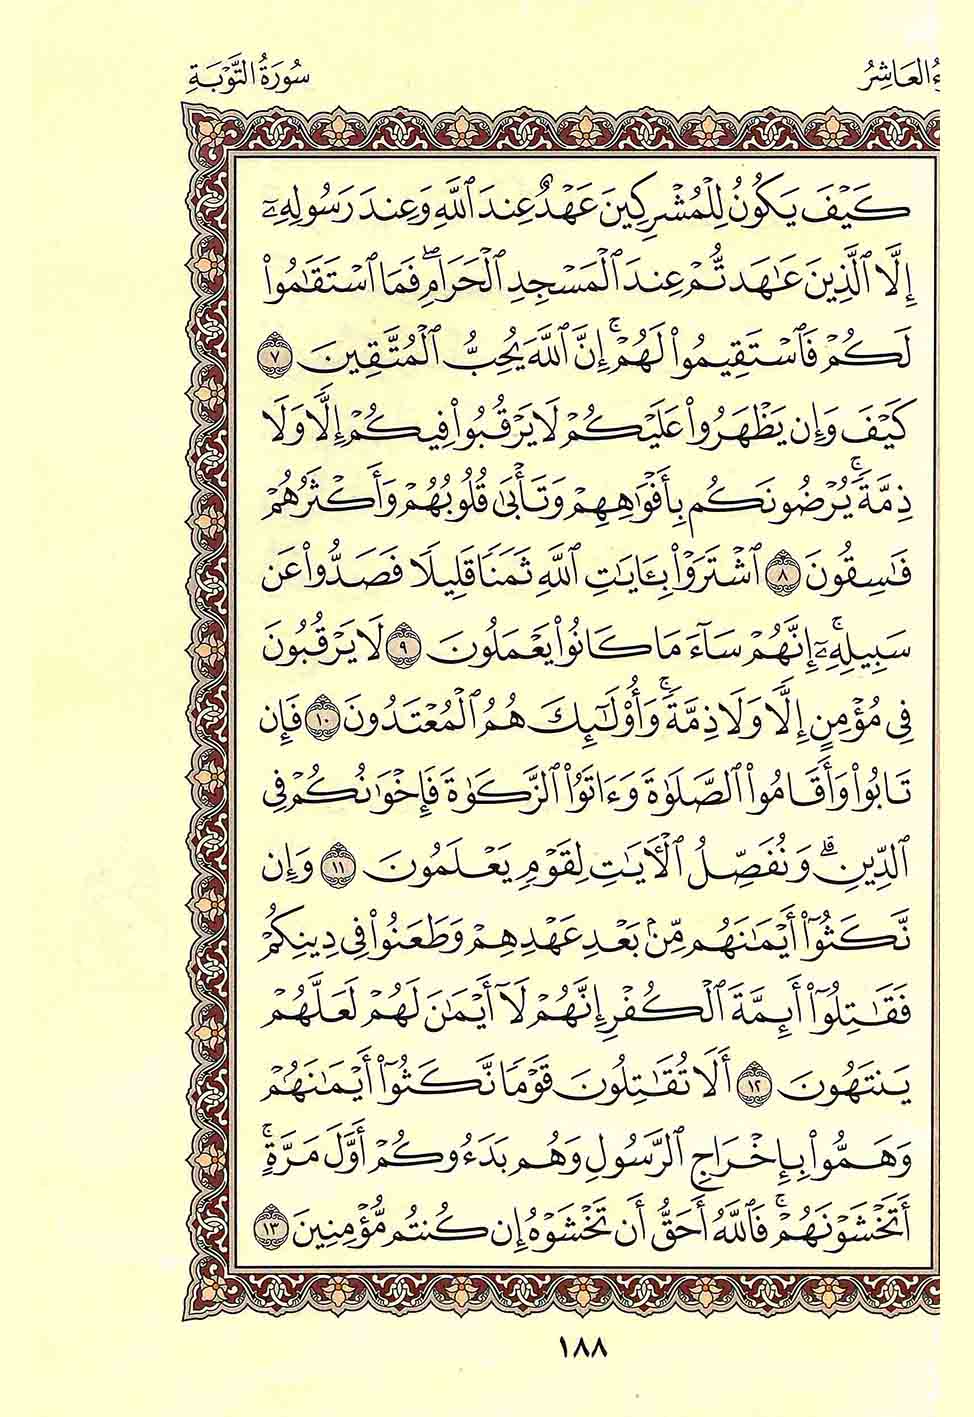 ءُ العَاشِرُ
سُورَةُ التَّوۡبَةِ
كَيۡفَ يَكُونُ لِلۡمُشۡرِكِينَ عَهۡدٌ عِندَ ٱللَّهِ وَعِندَ رَسُولِهِۦٓ
إِلَّا ٱلَّذِينَ عَٰهَدتُّمۡ عِندَ ٱلۡمَسۡجِدِ ٱلۡحَرَامِۖ فَمَا ٱسۡتَقَٰمُواْ
لَكُمۡ فَٱسۡتَقِيمُواْ لَهُمۡۚ إِنَّ ٱللَّهَ يُحِبُّ ٱلۡمُتَّقِينَ ٧
كَيۡفَ وَإِن يَظۡهَرُواْ عَلَيۡكُمۡ لَا يَرۡقُبُواْ فِيكُمۡ إِلّٗا وَلَا
ذِمَّةٗۚ يُرۡضُونَكُم بِأَفۡوَٰهِهِمۡ وَتَأۡبَىٰ قُلُوبُهُمۡ وَأَكۡثَرُهُمۡ
فَٰسِقُونَ ٨ ٱشۡتَرَوۡاْ بِـَٔايَٰتِ ٱللَّهِ ثَمَنٗا قَلِيلٗا فَصَدُّواْ عَن
سَبِيلِهِۦٓۚ إِنَّهُمۡ سَآءَ مَا كَانُواْ يَعۡمَلُونَ ٩ لَا يَرۡقُبُونَ
فِي مُؤۡمِنٍ إِلّٗا وَلَا ذِمَّةٗۚ وَأُوْلَٰٓئِكَ هُمُ ٱلۡمُعۡتَدُونَ ١٠ فَإِن
تَابُواْ وَأَقَامُواْ ٱلصَّلَوٰةَ وَءَاتَوُاْ ٱلزَّكَوٰةَ فَإِخۡوَٰنُكُمۡ فِي
ٱلدِّينِۗ وَنُفَصِّلُ ٱلۡأٓيَٰتِ لِقَوۡمٖ يَعۡلَمُونَ ١١ وَإِن
نَّكَثُوٓاْ أَيۡمَٰنَهُم مِّنۢ بَعۡدِ عَهۡدِهِمۡ وَطَعَنُواْ فِي دِينِكُمۡ
فَقَٰتِلُوٓاْ أَئِمَّةَ ٱلۡكُفۡرِ إِنَّهُمۡ لَآ أَيۡمَٰنَ لَهُمۡ لَعَلَّهُمۡ
يَنتَهُونَ ١٢ أَلَا تُقَٰتِلُونَ قَوۡمٗا نَّكَثُوٓاْ أَيۡمَٰنَهُمۡ
وَهَمُّواْ بِإِخۡرَاجِ ٱلرَّسُولِ وَهُم بَدَءُوكُمۡ أَوَّلَ مَرَّةٍۚ
أَتَخۡشَوۡنَهُمۡۚ فَٱللَّهُ أَحَقُّ أَن تَخۡشَوۡهُ إِن كُنتُم مُّؤۡمِنِينَ ١٣
١٨٨